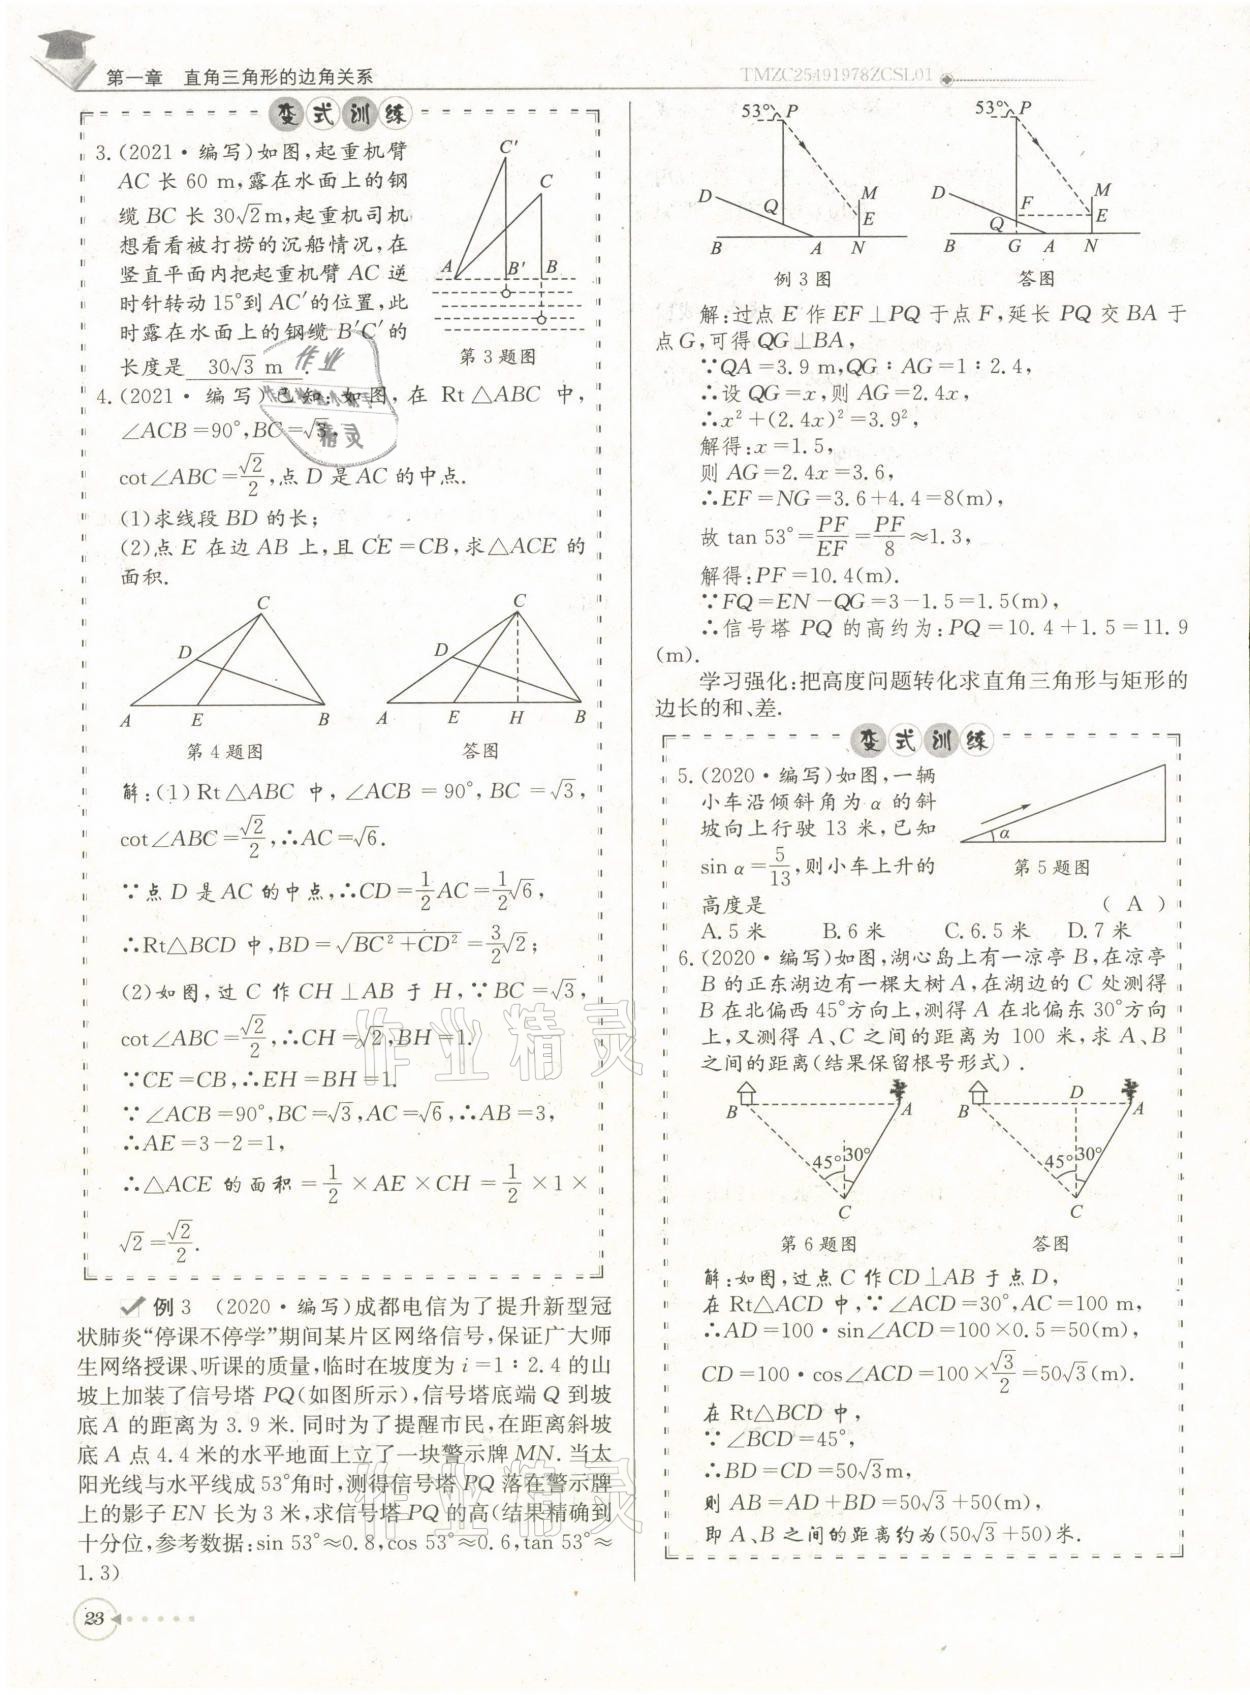 第一章 直角三角形的边角关系
TMZC25491978ZCSL01
变式训练
3.(2021·编写)如图,起重机臂
AC长60 m,露在水面上的钢
缆BC长30√2m,起重机司机
想看看被打捞的沉船情况,在
竖直平面内把起重机臂AC逆
时针转动15°到AC′的位置,此
时露在水面上的钢缆B′C′的
长度是 30√3 m
C′
C
A
B′
B
第3题图
4.(2021·编写)已知:如图,在Rt△ABC中,
∠ACB=90°,BC=√3,
cot∠ABC=√2/2,点D是AC的中点.
(1)求线段BD的长;
(2)点E在边AB上,且CE=CB,求△ACE的
面积.
C
D
A
E
B
第4题图
C
D
A
E
H
B
答图
解:(1)Rt△ABC中,∠ACB=90°,BC=√3,
cot∠ABC=√2/2,∴AC=√6.
∵点D是AC的中点,∴CD=1/2AC=1/2√6,
∴Rt△BCD中,BD=√(BC²+CD²)=3/2√2;
(2)如图,过C作CH⊥AB于H,∵BC=√3,
cot∠ABC=√2/2,∴CH=√2,BH=1.
∵CE=CB,∴EH=BH=1.
∵∠ACB=90°,BC=√3,AC=√6,∴AB=3,
∴AE=3-2=1,
∴△ACE的面积=1/2×AE×CH=1/2×1×
√2=√2/2.
例3 (2020·编写)成都电信为了提升新型冠
状肺炎“停课不停学”期间某片区网络信号,保证广大师
生网络授课、听课的质量,临时在坡度为i=1∶2.4的山
坡上加装了信号塔PQ(如图所示),信号塔底端Q到坡
底A的距离为3.9米.同时为了提醒市民,在距离斜坡
底A点4.4米的水平地面上立了一块警示牌MN.当太
阳光线与水平线成53°角时,测得信号塔PQ落在警示牌
上的影子EN长为3米,求信号塔PQ的高(结果精确到
十分位,参考数据:sin 53°≈0.8,cos 53°≈0.6,tan 53°≈
1.3)
23
53°
P
D
Q
M
E
B
A
N
例3图
53°
P
D
F
Q
M
E
B
G
A
N
答图
解:过点E作EF⊥PQ于点F,延长PQ交BA于
点G,可得QG⊥BA,
∵QA=3.9 m,QG∶AG=1∶2.4,
∴设QG=x,则AG=2.4x,
∴x²+(2.4x)²=3.9²,
解得:x=1.5,
则AG=2.4x=3.6,
∴EF=NG=3.6+4.4=8(m),
故tan 53°=PF/EF=PF/8≈1.3,
解得:PF=10.4(m).
∵FQ=EN-QG=3-1.5=1.5(m),
∴信号塔PQ的高约为:PQ=10.4+1.5=11.9
(m).
学习强化:把高度问题转化求直角三角形与矩形的
边长的和、差.
变式训练
5.(2020·编写)如图,一辆
小车沿倾斜角为α的斜
坡向上行驶13米,已知
sin α=5/13,则小车上升的
高度是 ( A )
A.5米 B.6米 C.6.5米 D.7米
α
第5题图
6.(2020·编写)如图,湖心岛上有一凉亭B,在凉亭
B的正东湖边有一棵大树A,在湖边的C处测得
B在北偏西45°方向上,测得A在北偏东30°方向
上,又测得A、C之间的距离为100米,求A、B
之间的距离(结果保留根号形式).
B
A
45°
30°
C
第6题图
B
D
A
45°
30°
C
答图
解:如图,过点C作CD⊥AB于点D,
在Rt△ACD中,∵∠ACD=30°,AC=100 m,
∴AD=100·sin∠ACD=100×0.5=50(m),
CD=100·cos∠ACD=100×√3/2=50√3(m).
在Rt△BCD中,
∵∠BCD=45°,
∴BD=CD=50√3m,
则AB=AD+BD=50√3+50(m),
即A、B之间的距离约为(50√3+50)米.
作业精灵
作业精灵